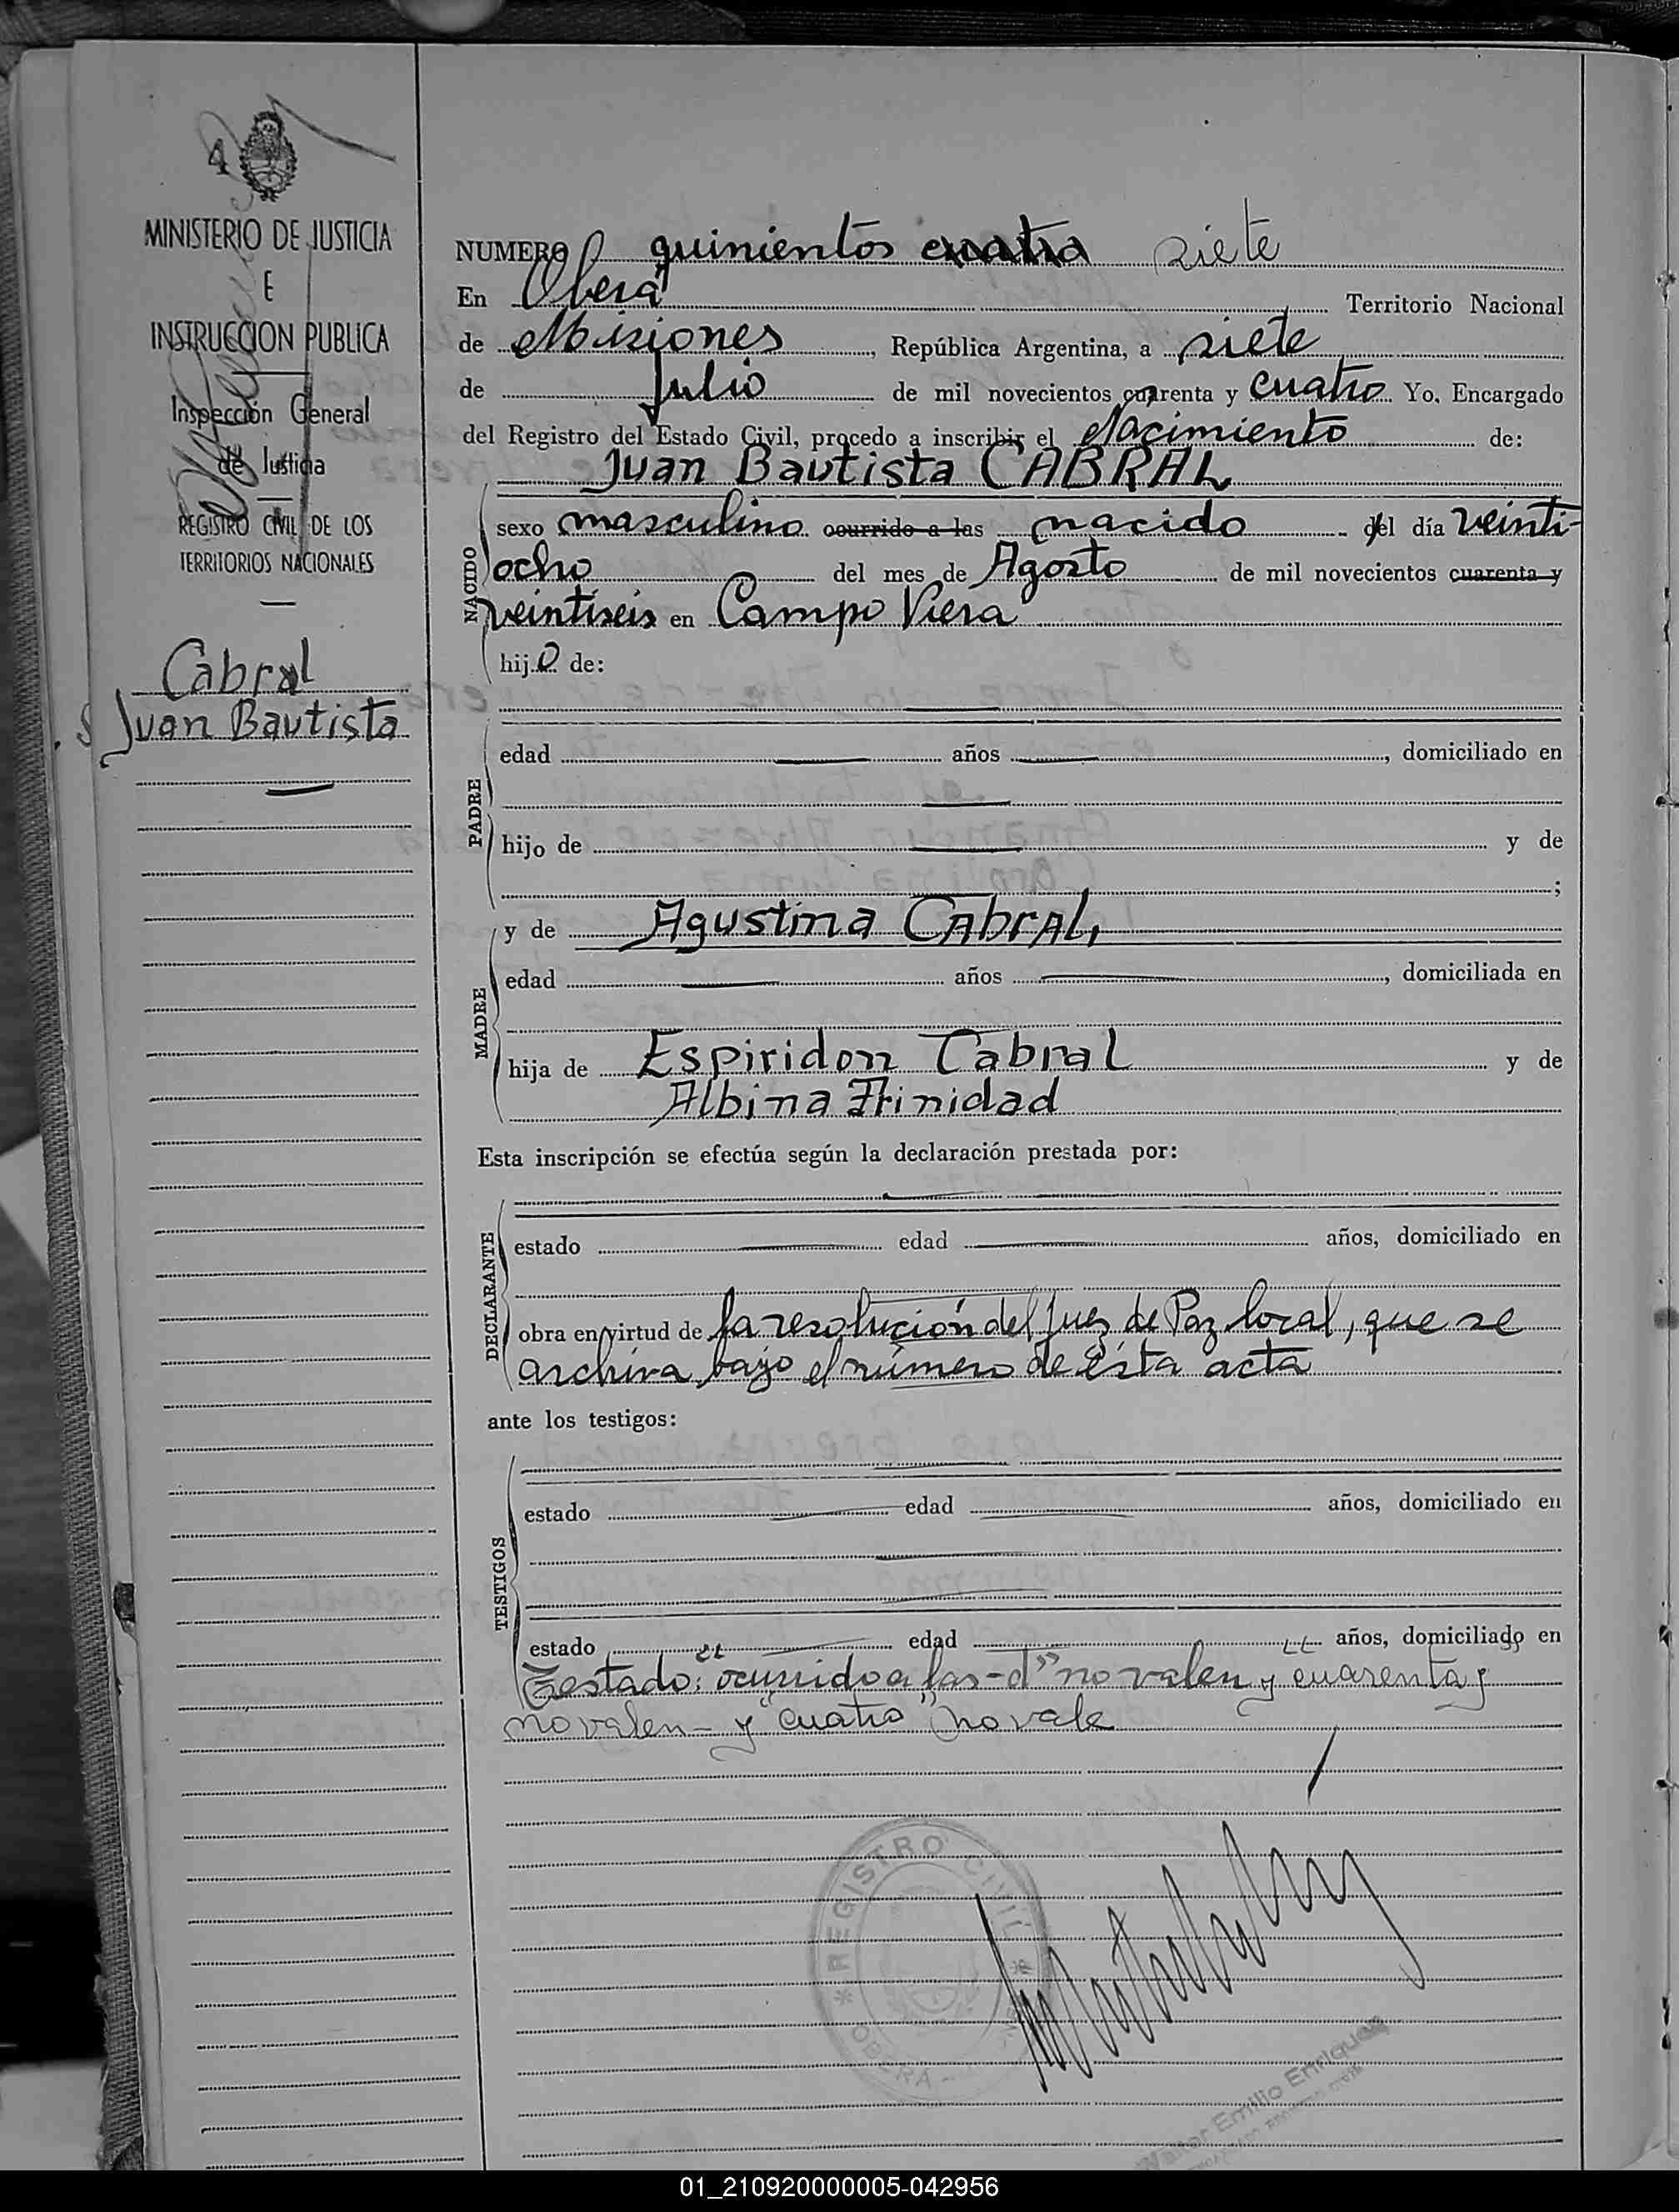 4
MINISTERIO DE JUSTICIA
E
INSTRUCCION PUBLICA
Inspección General
de Justicia
REGISTRO CIVIL DE LOS
TERRITORIOS NACIONALES
Cabral
Juan Bautista
NUMERO quinientos cuatro siete
En Oberá Territorio Nacional
de Misiones, República Argentina, a siete
de Julio de mil novecientos cuarenta y cuatro Yo, Encargado
del Registro del Estado Civil, procedo a inscribir el Nacimiento de:
Juan Bautista CABRAL
NACIDO
sexo masculino ocurrido a las nacido del día veinti-
ocho del mes de Agosto de mil novecientos cuarenta y
veintiseis en Campo Viera
hijo de:
PADRE
edad años , domiciliado en
hijo de y de
;
MADRE
y de Agustina CAbrAL,
edad años , domiciliada en
hija de Espiridon Cabral y de
Albina Trinidad
Esta inscripción se efectúa según la declaración prestada por:
DECLARANTE
estado edad años, domiciliado en
obra en virtud de la resolución del Juez de Paz local, que se
archiva bajo el número de ésta acta
ante los testigos:
TESTIGOS
estado edad años, domiciliado en
estado edad años, domiciliado en
Testado: "ocurrido a las - d" no valen y "cuarenta y
no valen - y "cuatro" no vale
* REGISTRO CIVIL *
OBERÁ
Emilio Enriquez
01_210920000005-042956